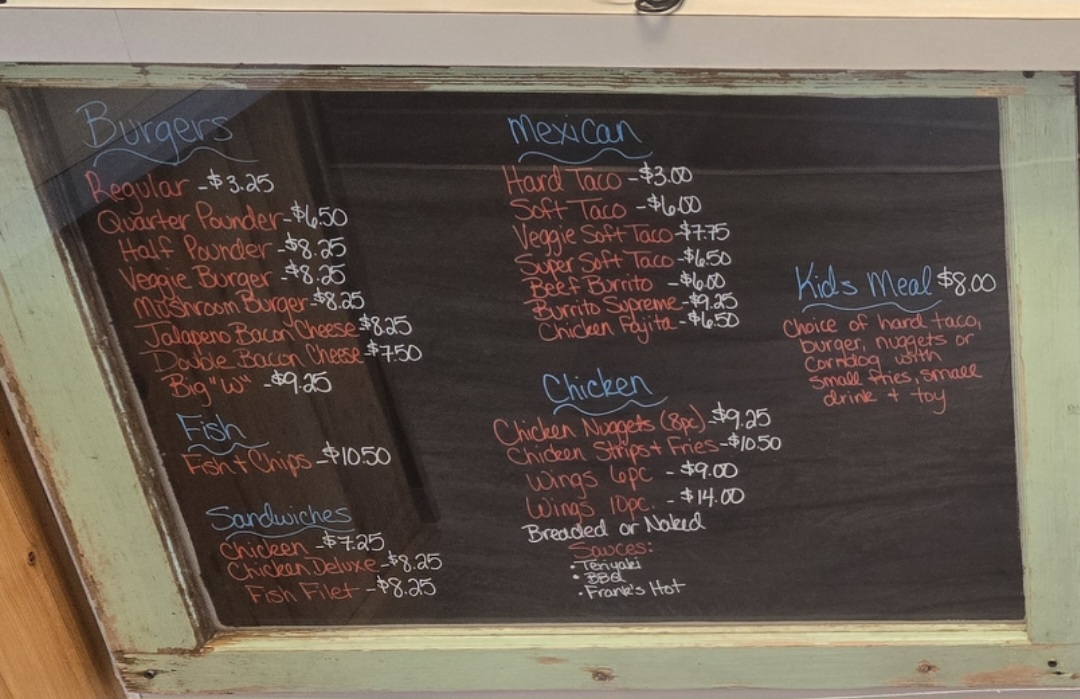 Burgers
Regular - $3.25
Quarter Pounder - $6.50
Half Pounder - $8.25
Veggie Burger - $8.25
Mushroom Burger - $8.25
Jalapeno Bacon Cheese $8.25
Double Bacon Cheese - $7.50
Big "W" - $9.25
Fish
Fish + Chips - $10.50
Sandwiches
Chicken - $7.25
Chicken Deluxe - $8.25
Fish Filet - $8.25
Mexican
Hard Taco - $3.00
Soft Taco - $6.00
Veggie Soft Taco - $7.75
Super Soft Taco - $6.50
Beef Burrito - $6.00
Burrito Supreme - $9.25
Chicken Fajita - $6.50
Chicken
Chicken Nuggets (8pc) - $9.25
Chicken Strips + Fries - $10.50
Wings 6pc - $9.00
Wings 10pc. - $14.00
Breaded or Naked
Sauces:
• Teriyaki
• BBQ
• Frank's Hot
Kids Meal $8.00
Choice of hard taco,
burger, nuggets or
Corndog with
small fries, small
drink + toy